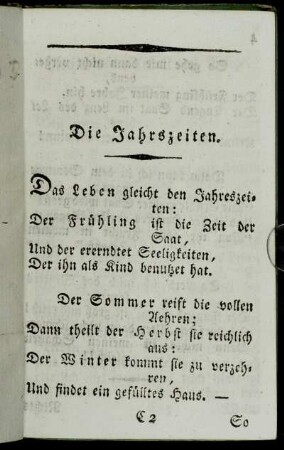 Die Jahrszeiten.
Das Leben gleicht den Jahreszei-
ten:
Der Frühling ist die Zeit der
Saat,
Und der ererndtet Seeligkeiten,
Der ihn als Kind benutzet hat.
Der Sommer reift die vollen
Aehren;
Dann theilt der Herbst sie reichlich
aus:
Der Winter kommt sie zu verzeh-
ren,
Und findet ein gefülltes Haus. —
C 2 So